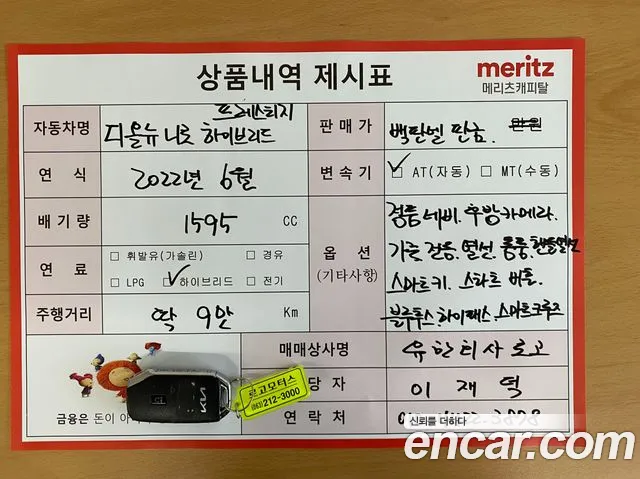 상품내역 제시표
meritz
메리츠캐피탈
자동차명
프레스티지
디올뉴니로 하이브리드
판 매 가
만원
연 식
2022년 6월
변 속 기
AT(자동) MT(수동)
배 기 량
1595 CC
옵 션
(기타사항)
정품네비. 후방카메라.
가죽 전동. 열선. 통풍. 핸들열선
스마트키. 스타트 버튼.
블루투스. 하이패스. 스마트크루즈
연 료
휘발유(가솔린) 경유
LPG 하이브리드 전기
주행거리
딱 9만 Km
매매상사명
당 자
이 재 덕
연 락 처
로고모터스
(063)212-3000
KIA
금융은 돈이 아
신뢰를 더하다
encar.com